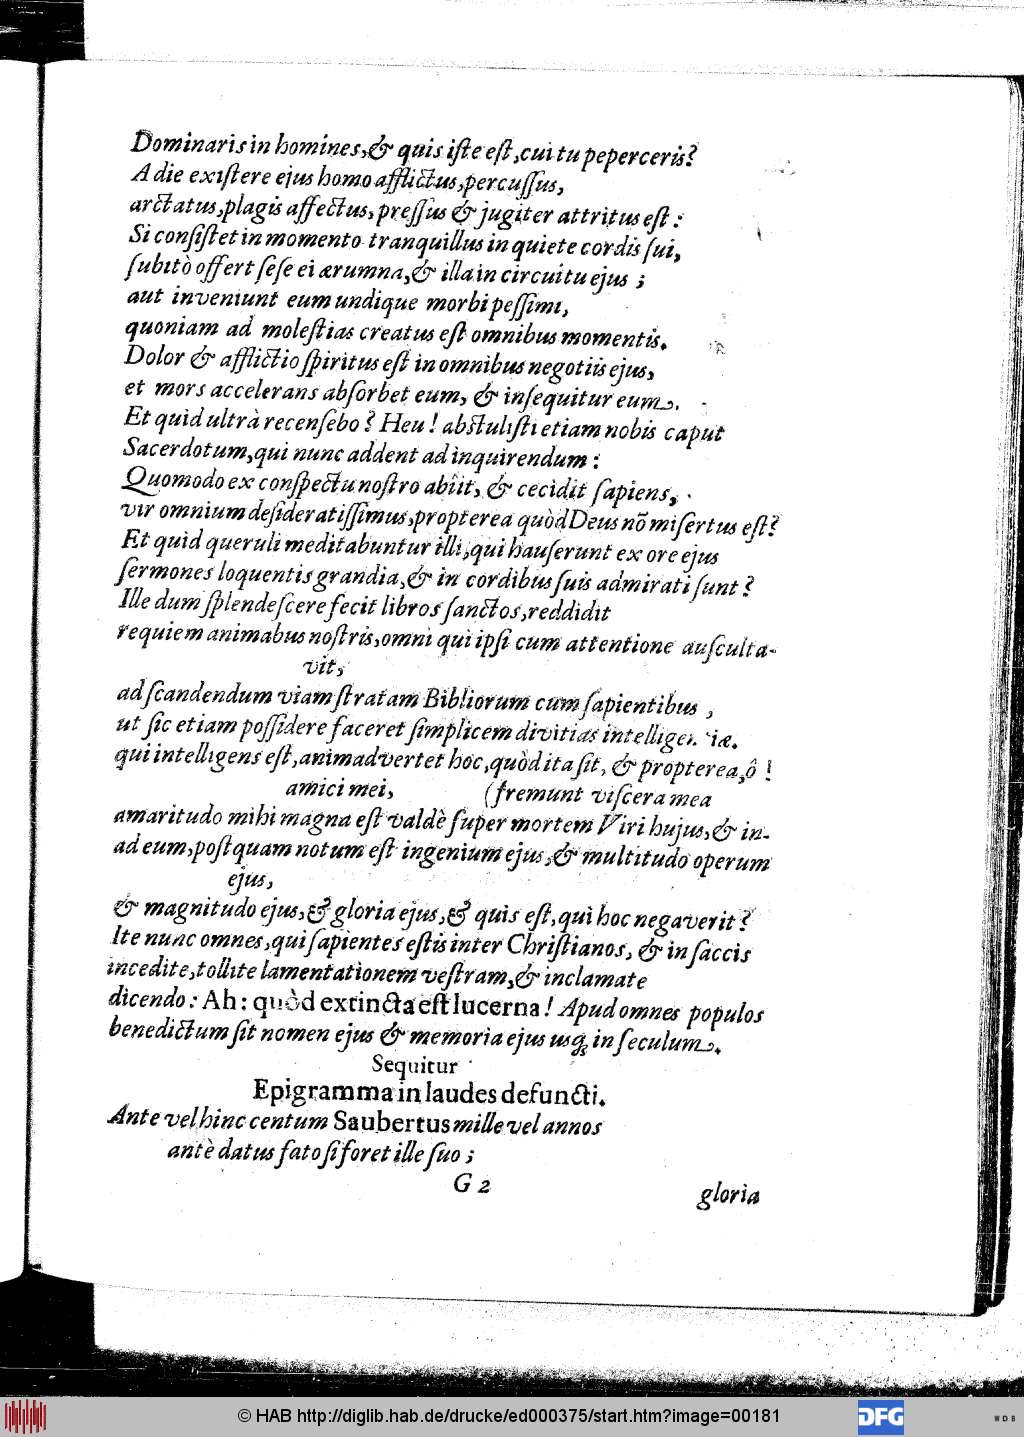 Dominaris in homines, & quis iſte eſt, cui tu peperceris?
A die exiſtere ejus homo afflictus, percuſſus,
arctatus, plagis affectus, preſſus & jugiter attritus eſt:
Si conſiſtet in momento tranquillus in quiete cordis ſui,
ſubitò offert ſeſe ei ærumna, & illa in circuitu ejus;
aut inveniunt eum undique morbi peſſimi,
quoniam ad moleſtias creatus eſt omnibus momentis.
Dolor & afflictio ſpiritus eſt in omnibus negotiis ejus,
et mors accelerans abſorbet eum, & inſequitur eum.
Et quid ultrà recenſebo? Heu! abſtuliſti etiam nobis caput
Sacerdotum, qui nunc addent ad inquirendum:
Quomodo ex conſpectu noſtro abîit, & cecidit ſapiens,
vir omnium deſideratiſſimus, propterea quòd Deus nõ miſertus eſt?
Et quid queruli meditabuntur illi, qui hauſerunt ex ore ejus
ſermones loquentis grandia, & in cordibus ſuis admirati ſunt?
Ille dum ſplendeſcere fecit libros ſanctos, reddidit
requiem animabus noſtris, omni qui ipſi cum attentione auſculta-
vit,
ad ſcandendum viam ſtratam Bibliorum cum ſapientibus,
ut ſic etiam poſſidere faceret ſimplicem divitias intelligentiæ.
qui intelligens eſt, animadvertet hoc, quòd ita ſit, & propterea, ô!
amici mei, (fremunt viſcera mea
amaritudo mihi magna eſt valdè ſuper mortem Viri hujus, & in-
ad eum, poſtquam notum eſt ingenium ejus, & multitudo operum
ejus,
& magnitudo ejus, & gloria ejus, & quis eſt, qui hoc negaverit?
Ite nunc omnes, qui ſapientes eſtis inter Chriſtianos, & in ſaccis
incedite, tollite lamentationem veſtram, & inclamate
dicendo: Ah: quòd extincta eſt lucerna! Apud omnes populos
benedictum ſit nomen ejus & memoria ejus usq; in ſeculum.
Sequitur
Epigramma in laudes defuncti.
Ante vel hinc centum Saubertus mille vel annos
antè datus fato ſi foret ille ſuo;
G 2 gloria
© HAB http://diglib.hab.de/drucke/ed000375/start.htm?image=00181
DFG
WDB